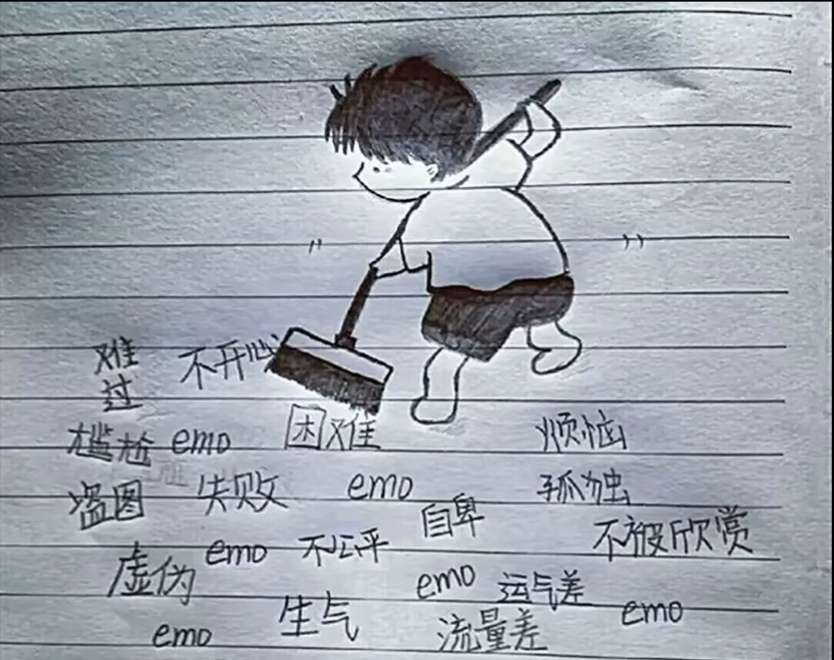 “ ”
难过 不开心
尴尬 emo 困难 烦恼
盗图 失败 emo 孤独
自卑
虚伪 emo 不公平 不被欣赏
emo 运气差 emo
emo 生气 流量差